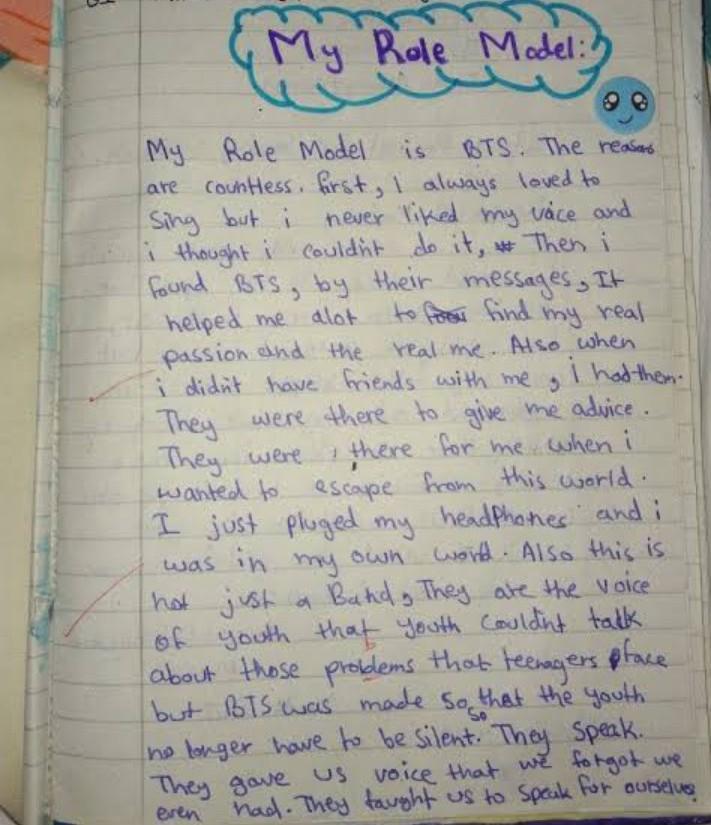 My Role Model:
My Role Model is BTS. The reasons
are countless. first, I always loved to
Sing but i never liked my voice and
i thought i couldn't do it, Then i
found BTS, by their messages, It
helped me alot to find my real
passion and the real me. Also when
i didn't have friends with me, I had them.
They were there to give me advice.
They were, there for me when i
wanted to escape from this world.
I just pluged my headphones and i
was in my own word. Also this is
not just a Band, They are the voice
of youth that youth couldn't talk
about those problems that teenagers face
but BTS was made so that the youth
so
no longer have to be silent. They speak.
They gave us voice that we forgot we
even had. They taught us to speak for ourselves